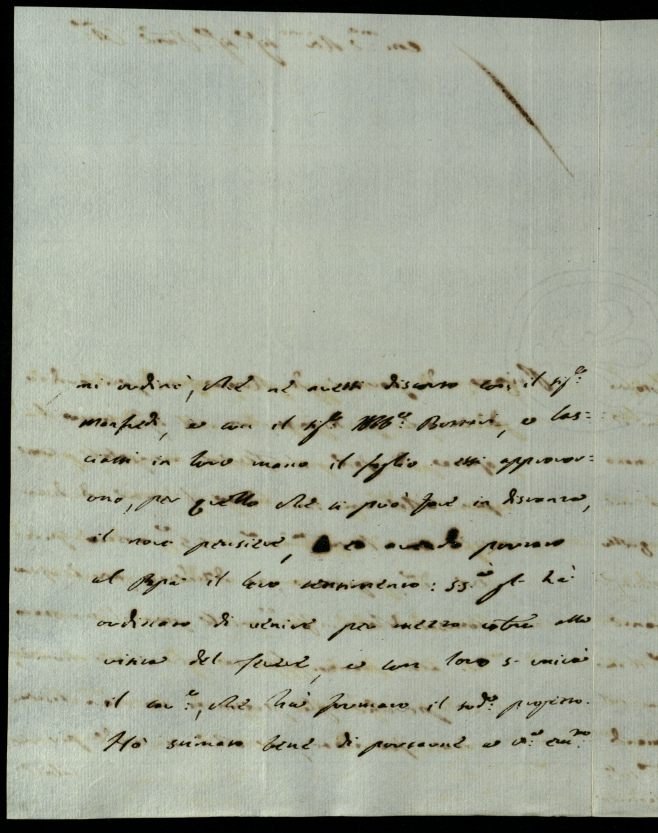 mi ordinò, che ne avessi discorso con il Sig.re
Manfredi, e con il Sig.re Ab.e e las=
ciassi in loro mano il foglio. essi approvor=
ono, per quello che si può fare in distanza,
il novo pensiere, ed avendo portato
al Papa il loro sentimento: SS.à gl' hà
ordinato di venire per mezza 8bre alla
visita del , e con loro s' unirà
il cav.e, che hà formato il sud.o progetto.
Hò stimato bene di portarne a V.a Em.za